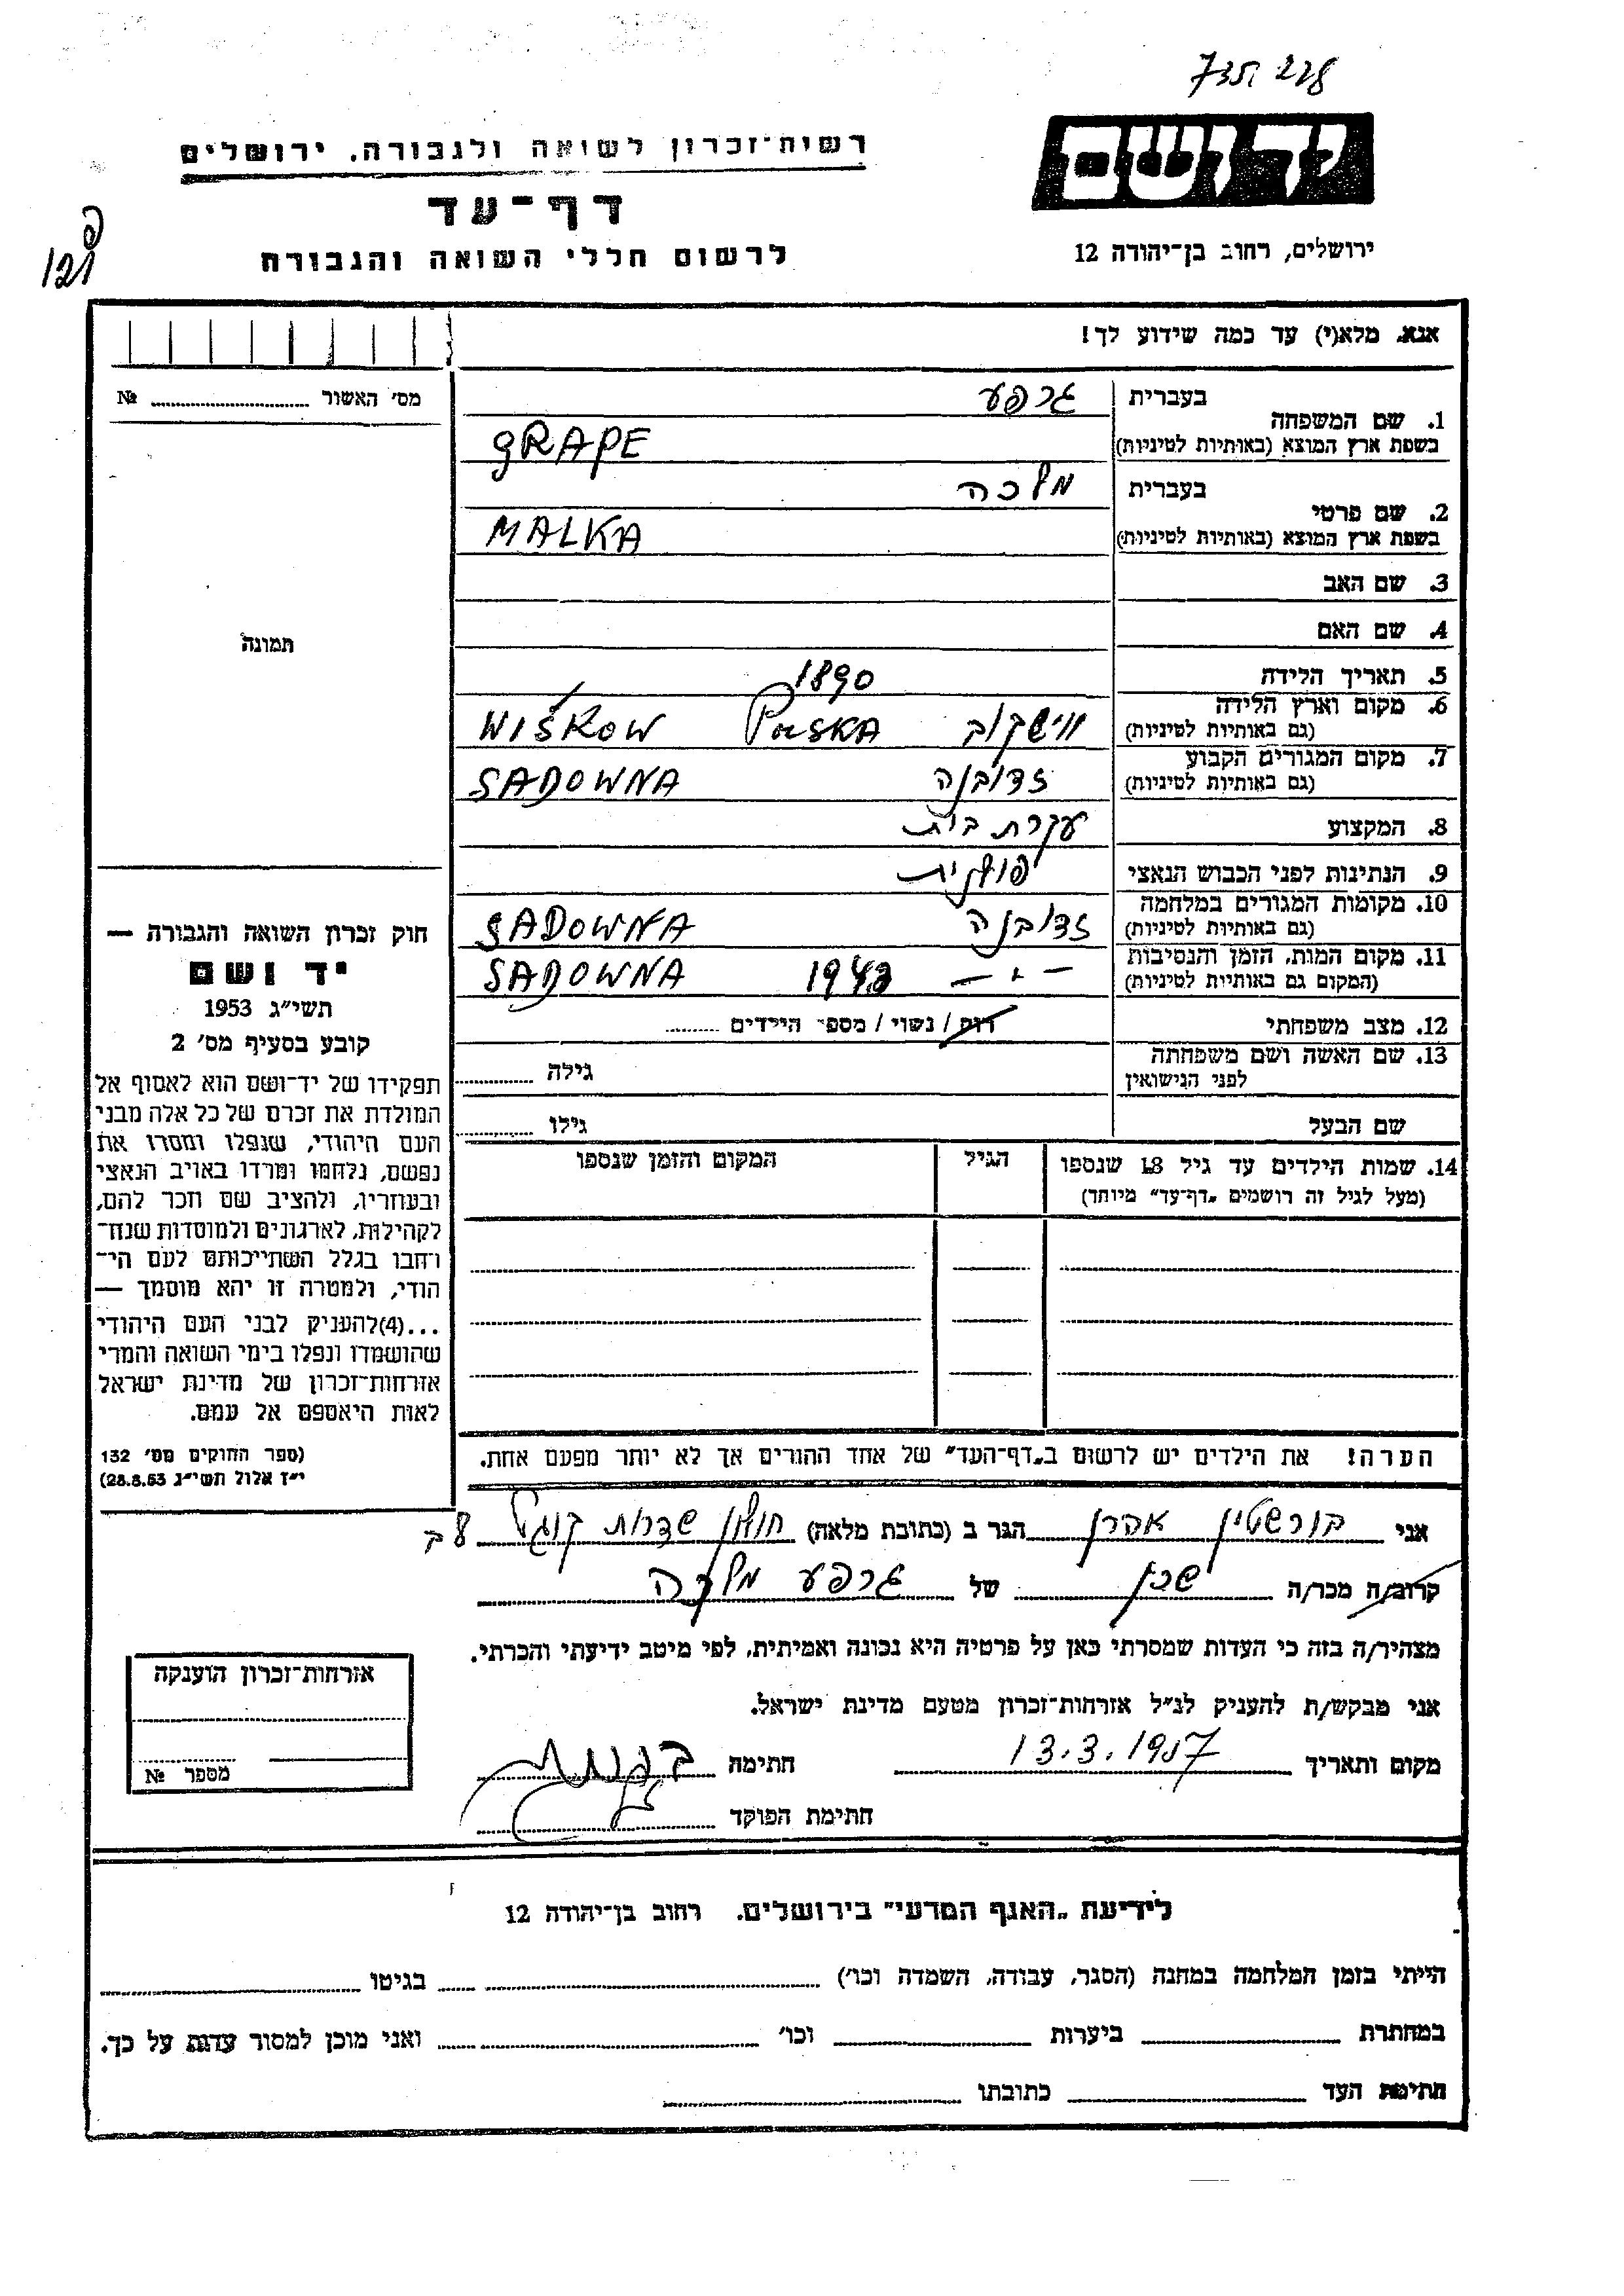 יד ושם
רשות־זכרון לשואה ולגבורה. ירושלים
דף־עד
לרשום חללי השואה והגבורה
ירושלים, רחוב בן־יהודה 12
אנא. מלא(י) עד כמה שידוע לך!
מס' האשור № 
בעברית גרפע
1. שם המשפחה
בשפת ארץ המוצא (באותיות לטיניות) GRAPE
בעברית מלכה
2. שם פרטי
בשפת ארץ המוצא (באותיות לטיניות) MALKA
3. שם האב
4. שם האם
תמונה
5. תאריך הלידה 1890
6. מקום וארץ הלידה
(גם באותיות לטיניות) ווישקוב POLSKA WIŚKOW
7. מקום המגורים הקבוע
(גם באותיות לטיניות) זדובנה SADOWNA
8. המקצוע עקרת בית
9. הנתינות לפני הכבוש הנאצי פולנית
10. מקומות המגורים במלחמה
(גם באותיות לטיניות) זדובנה SADOWNA
11. מקום המות, הזמן והנסיבות
(המקום גם באותיות לטיניות) — " — 1943 SADOWNA
12. מצב משפחתי רווק / נשוי / מספר הילדים
13. שם האשה ושם משפחתה
לפני הנישואין גילה
שם הבעל גילו
14. שמות הילדים עד גיל 18 שנספו הגיל המקום והזמן שנספו
(מעל לגיל זה רושמים „דף־עד" מיוחד)
הערה! את הילדים יש לרשום ב„דף־העד" של אחד ההורים אך לא יותר מפעם אחת.
חוק זכרון השואה והגבורה —
יד ושם
תשי"ג 1953
קובע בסעיף מס' 2
תפקידו של יד־ושם הוא לאסוף אל
המולדת את זכרם של כל אלה מבני
העם היהודי, שנפלו ומסרו את
נפשם, נלחמו ומרדו באויב הנאצי
ובעוזריו, ולהציב שם וזכר להם,
לקהילות, לארגונים ולמוסדות שנח־
רחבו בגלל השתייכותם לעם הי־
הודי, ולמטרה זו יהא מוסמך —
...(4)להעניק לבני העם היהודי
שהושמדו ונפלו בימי השואה והמרי
אזרחות־זכרון של מדינת ישראל
לאות היאספם אל עמם.
(ספר החוקים מס' 132
י"ז אלול תשי"ג 28.8.53)
אני בורשטין אהרן הגר ב (כתובת מלאה) חולון שדרות קוגל
קרוב/ה מכר/ה שכן של גרפע מלכה
מצהיר/ה בזה כי העדות שמסרתי כאן על פרטיה היא נכונה ואמיתית, לפי מיטב ידיעתי והכרתי.
אני מבקש/ת להעניק לנ"ל אזרחות־זכרון מטעם מדינת ישראל.
מקום ותאריך 13.3.1957 חתימה
חתימת הפוקד
אזרחות־זכרון הוענקה
מספר №
לידיעת „האגף המדעי" בירושלים. רחוב בן־יהודה 12
הייתי בזמן המלחמה במחנה (הסגר, עבודה, השמדה וכו') בגיטו
במחתרת ביערות וכו' ואני מוכן למסור עדות על כך.
חתימת העד כתובתו